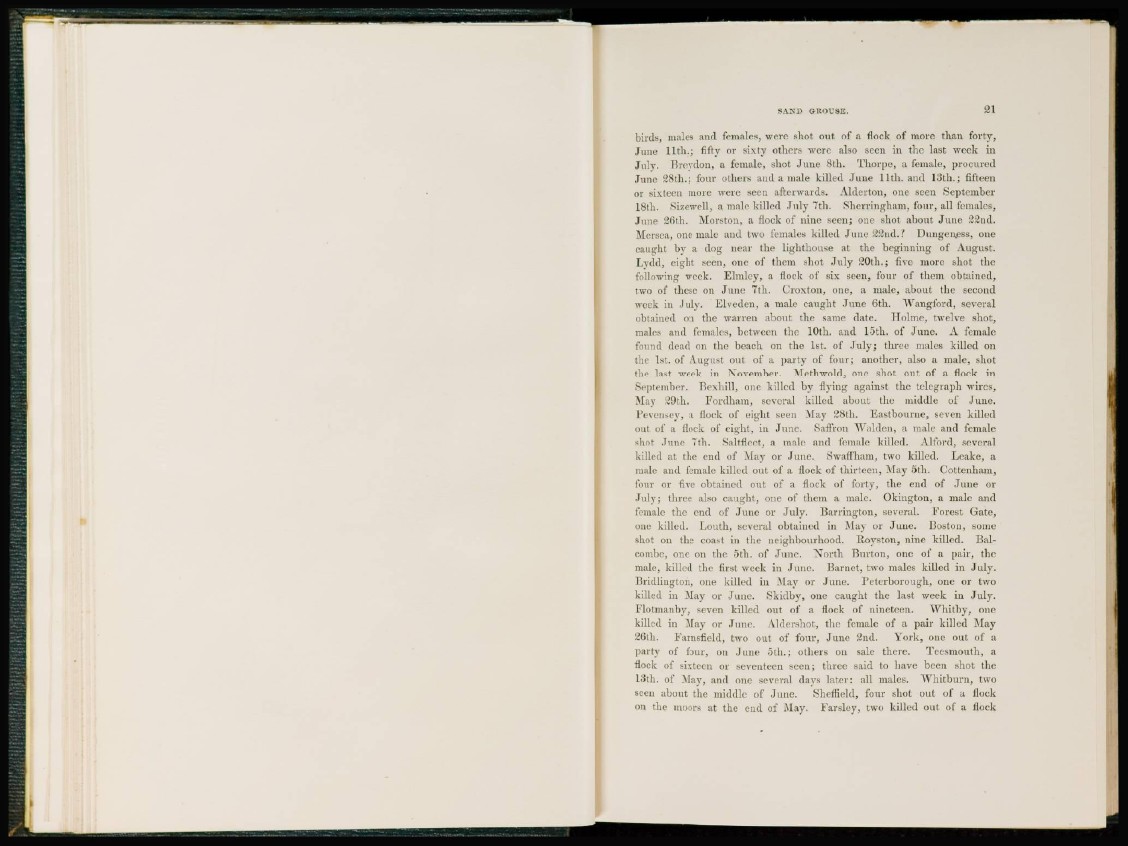 SAND GROUSE. 21
birds, males and females, were shot out of a flock of more than forty,
June 11th.; fifty or sixty others were also seen in the last week in
July. Breydon, a female, shot June 8th. Thorpe, a female, procured
June 28th.; four others and a male killed June 11th. and 13th.; fifteen
or sixteen more were seen afterwards. Alderton, one seen September
18th. Sizewell, a male killed July 7th. Sherringham, four, all females,
June 26th. Morston, a flock of nine seen; one shot about June 22nd.
Mersea, one male and two females killed June 22nd.? Dungeness, one
caught by a dog near the lighthouse at the beginning of August.
Lydd, eight seen, one of them shot July 20th.; five more shot the
following week. Elmley, a flock of six seen, four of them obtained,
two of these on June 7th. Croxton, one, a male, about the second
week in July. Elveden, a male caught June 6th. Wangford, several
obtained on the warren about the same date. Holme, twelve shot,
males and females, between the 10th. and 15th. of June. A female
found dead on the beach on the 1st. of July; three males killed on
the 1st. of August out of a party of four; another, also a male, shot
the last week in November. Methwold, one shot out of a flock in
September. Bexhill, one killed by flying against the telegraph wires,
May 29th. Fordham, several killed about the middle of June.
Pevensey, a flock of eight seen May 28th. Eastbourne, seven killed
out of a flock of eight, in June. Saffron Walden, a male and female
shot June 7th. Saltfleet, a male and female killed. Alford, several
killed at the end of May or June. Swaffham, two killed. Leake, a
male and female killed out of a flock of thirteen, May 5th. Cottenham,
four or five obtained out of a flock of forty, the end of June or
July; three also caught, one of them a male. Okington, a male and
female the end of June or July. Barrington, several. Forest Gate,
one killed. Louth, several obtained in May or June. Boston, some
shot on the coast in the neighbourhood. Royston, nine killed. Bal-
combe, one on the 5th. of June. North Burton, one of a pair, the
male, killed the first week in June. Barnet, two males killed in July.
Bridlington, one killed in May or June. Peterborough, one or two
killed in May or June. Skidby, one caught the last week in July.
Flotmanby, seven killed out of a flock of nineteen. Whitby, one
killed in May or June. Aldershot, the female of a pair killed May
26th. Farnsfield, two out of four, June 2nd. York, one out of a
party of four, on June 5th.; others on sale there. Teesmouth, a
flock of sixteen or seventeen seen; three said to have been shot the
13th. of May, and one several days later: all males. Whitburn, two
seen about the middle of June. Sheffield, four shot out of a flock
on the moors at the end of May. Farsley, two killed out of a flock